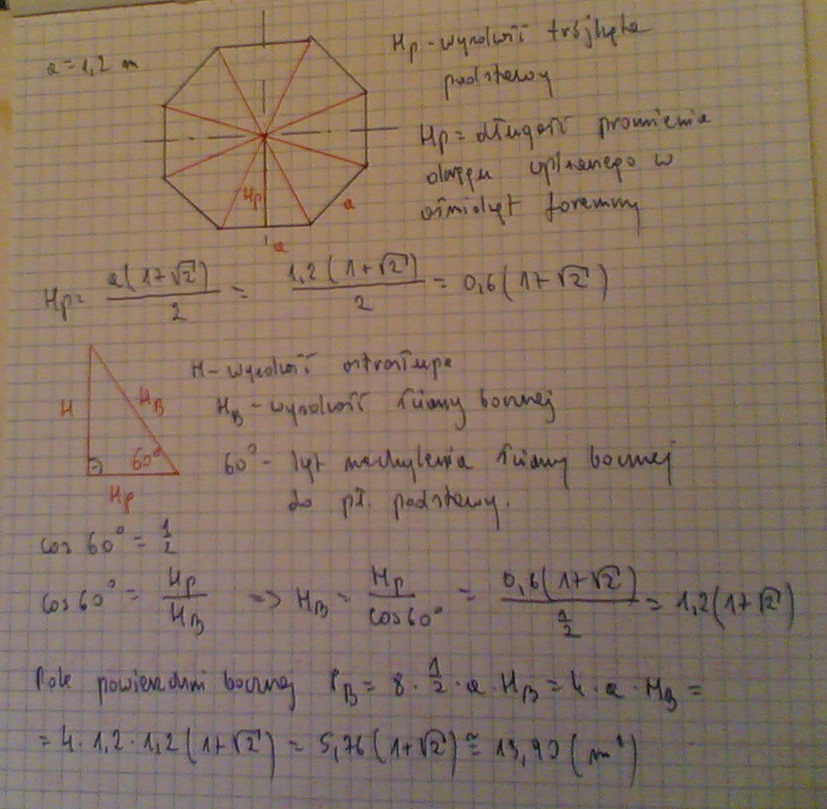 a = 1,2 m
Hp - wysokość trójkąta
podstawy
Hp = długość promienia
okręgu wpisanego w
ośmiokąt foremny
Hp
a
a
Hp = a(1+√2)/2 = 1,2(1+√2)/2 = 0,6(1+√2)
H - wysokość ostrosłupa
H_B - wysokość ściany bocznej
60° - kąt nachylenia ściany bocznej
do pł. podstawy.
H
H_B
60°
Hp
cos 60° = 1/2
cos 60° = Hp/H_B => H_B = Hp/cos60° = 0,6(1+√2)/(1/2) = 1,2(1+√2)
Pole powierzchni bocznej P_B = 8 · 1/2 · a · H_B = 4 · a · H_B =
= 4 · 1,2 · 1,2(1+√2) = 5,76(1+√2) ≅ 13,90 (m²)